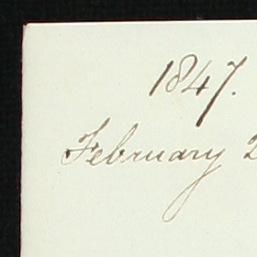 1847.
February 2